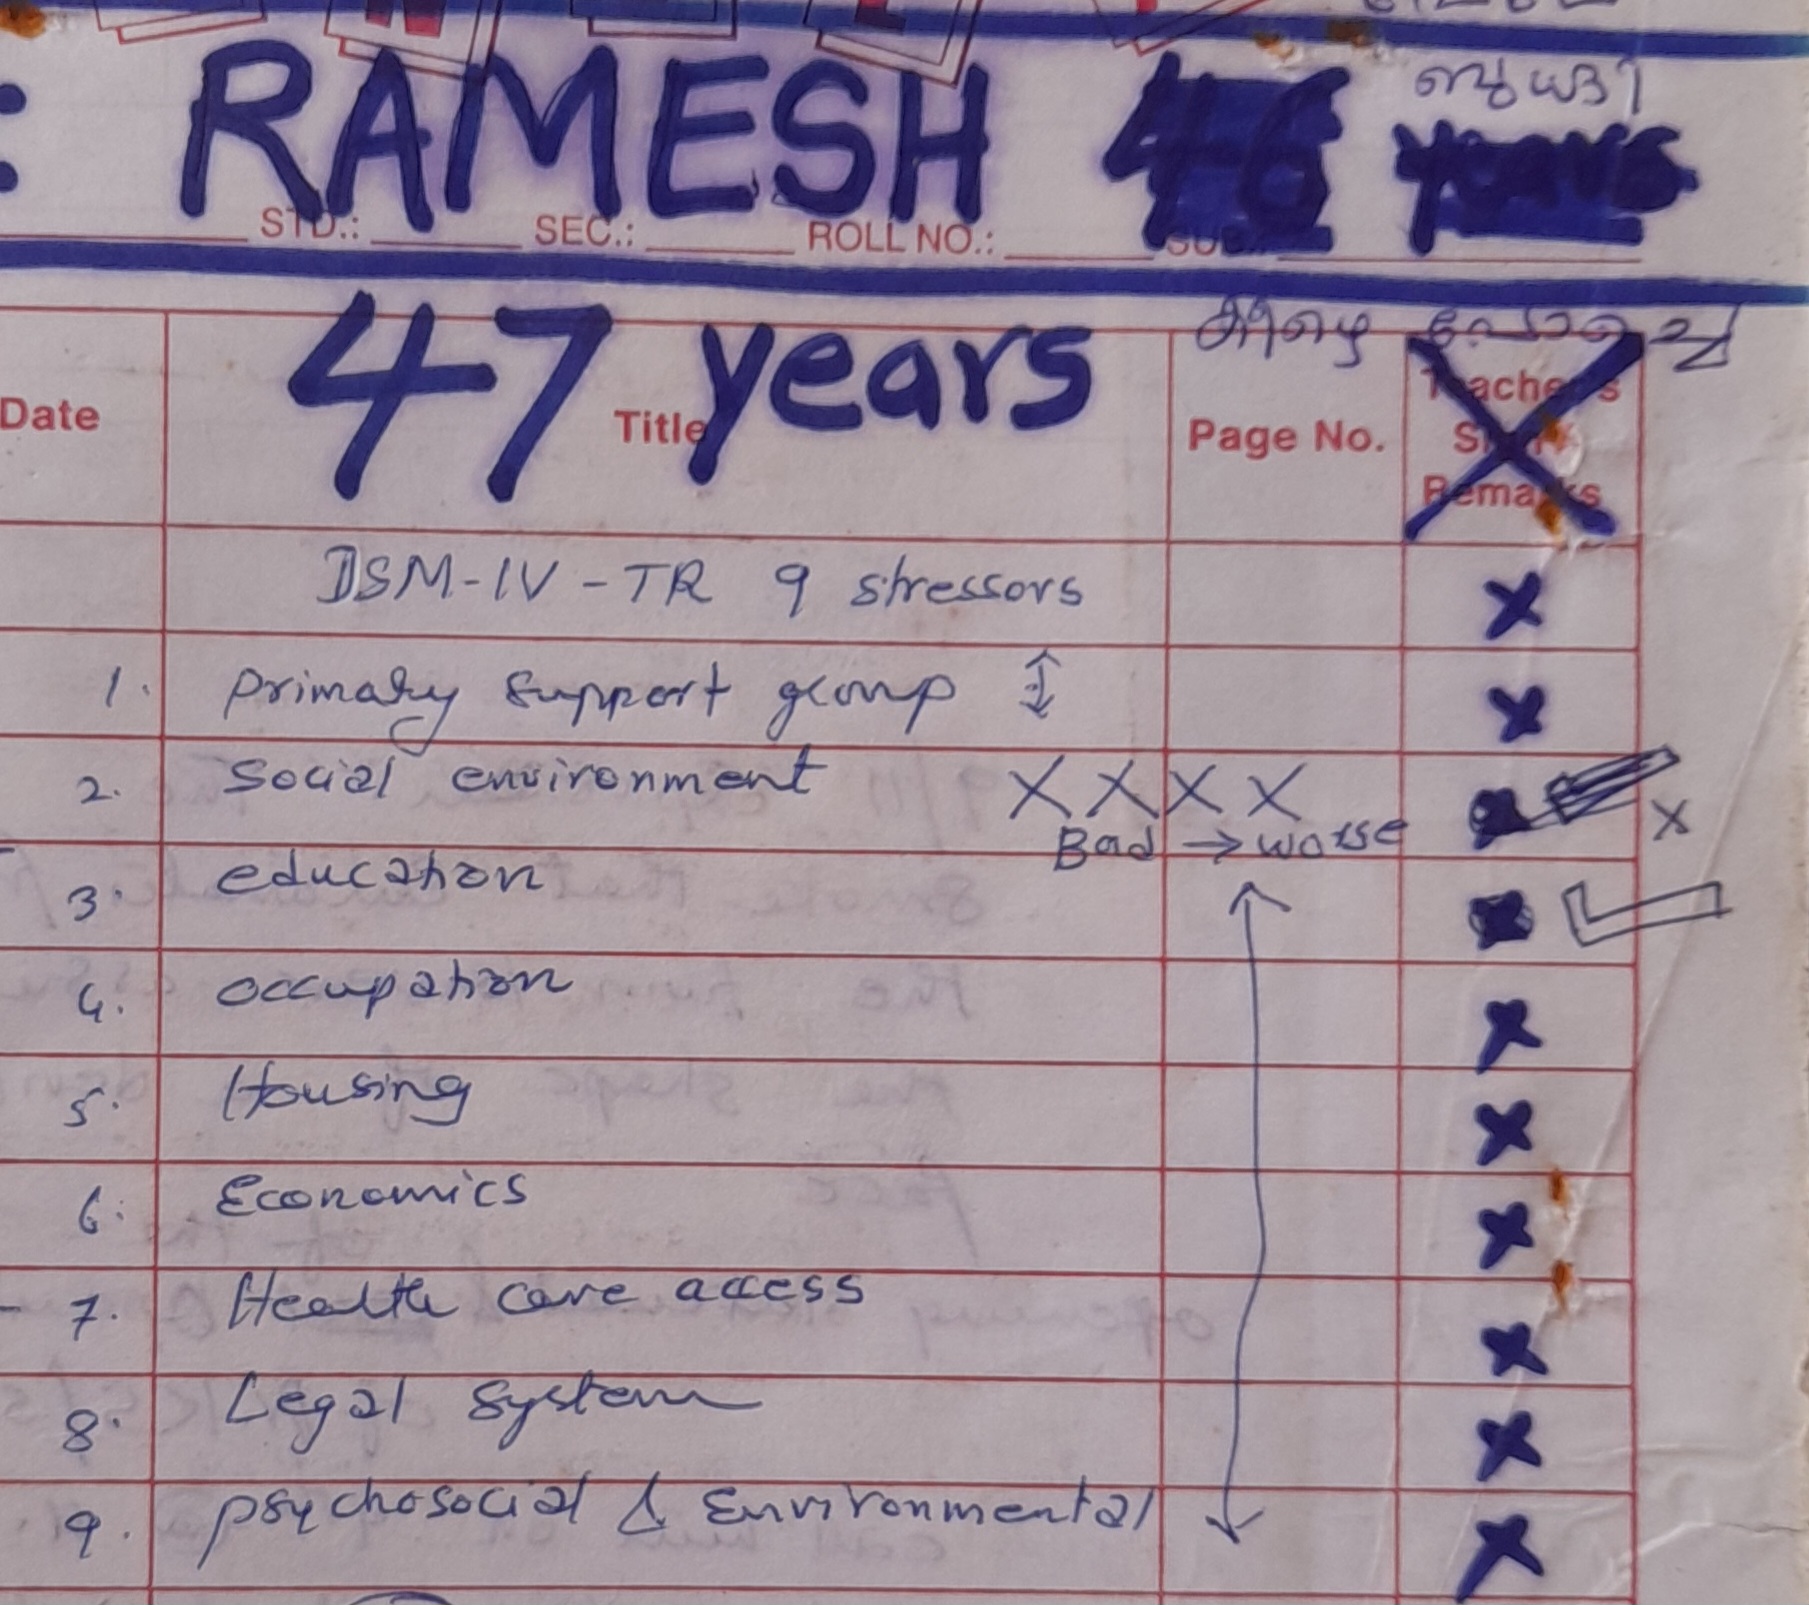 : RAMESH 46 years
ബുദ്ധി
STD.: SEC.: ROLL NO.: SUB.:
47 years
Date Title Page No. Teacher's Sign/ Remarks
DSM-IV-TR 9 stressors
1. primary support group ↕
2. social environment X X X X X
Bad → worse
3. education
4. occupation
5. Housing
6. Economics
7. Health care access
8. Legal system
9. psychosocial & Environmental